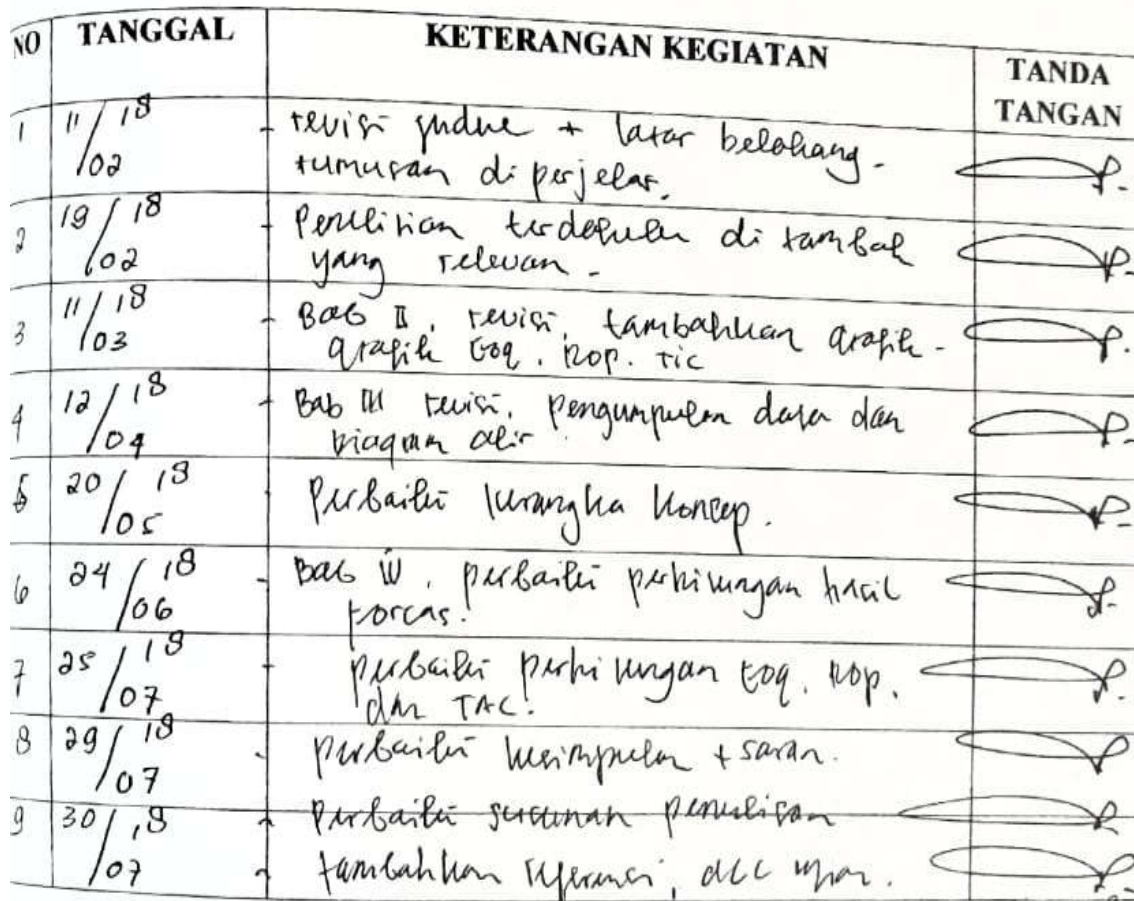 NO TANGGAL KETERANGAN KEGIATAN TANDA TANGAN
1 11/02 18 - revisi judul + latar belakang -
rumusan di perjelas.
2 19/02 18 - Penelitian terdahulu di tambah
yang relevan -
3 11/03 18 - Bab II, revisi, tambahkan Grafik -
grafik EOQ. ROP. TIC
4 12/04 18 - Bab III revisi, pengumpulan data dan
Diagram alir
5 20/05 18 Perbaiki kerangka konsep.
6 24/06 18 - Bab IV, perbaiki perhitungan hasil
Forcas.
7 25/07 18 - perbaiki perhitungan EOQ. ROP.
dan TAC.
8 29/07 18 - perbaiki kesimpulan + saran.
9 30/07 18 - Perbaiki susunan penulisan
- tambahkan referensi, acc